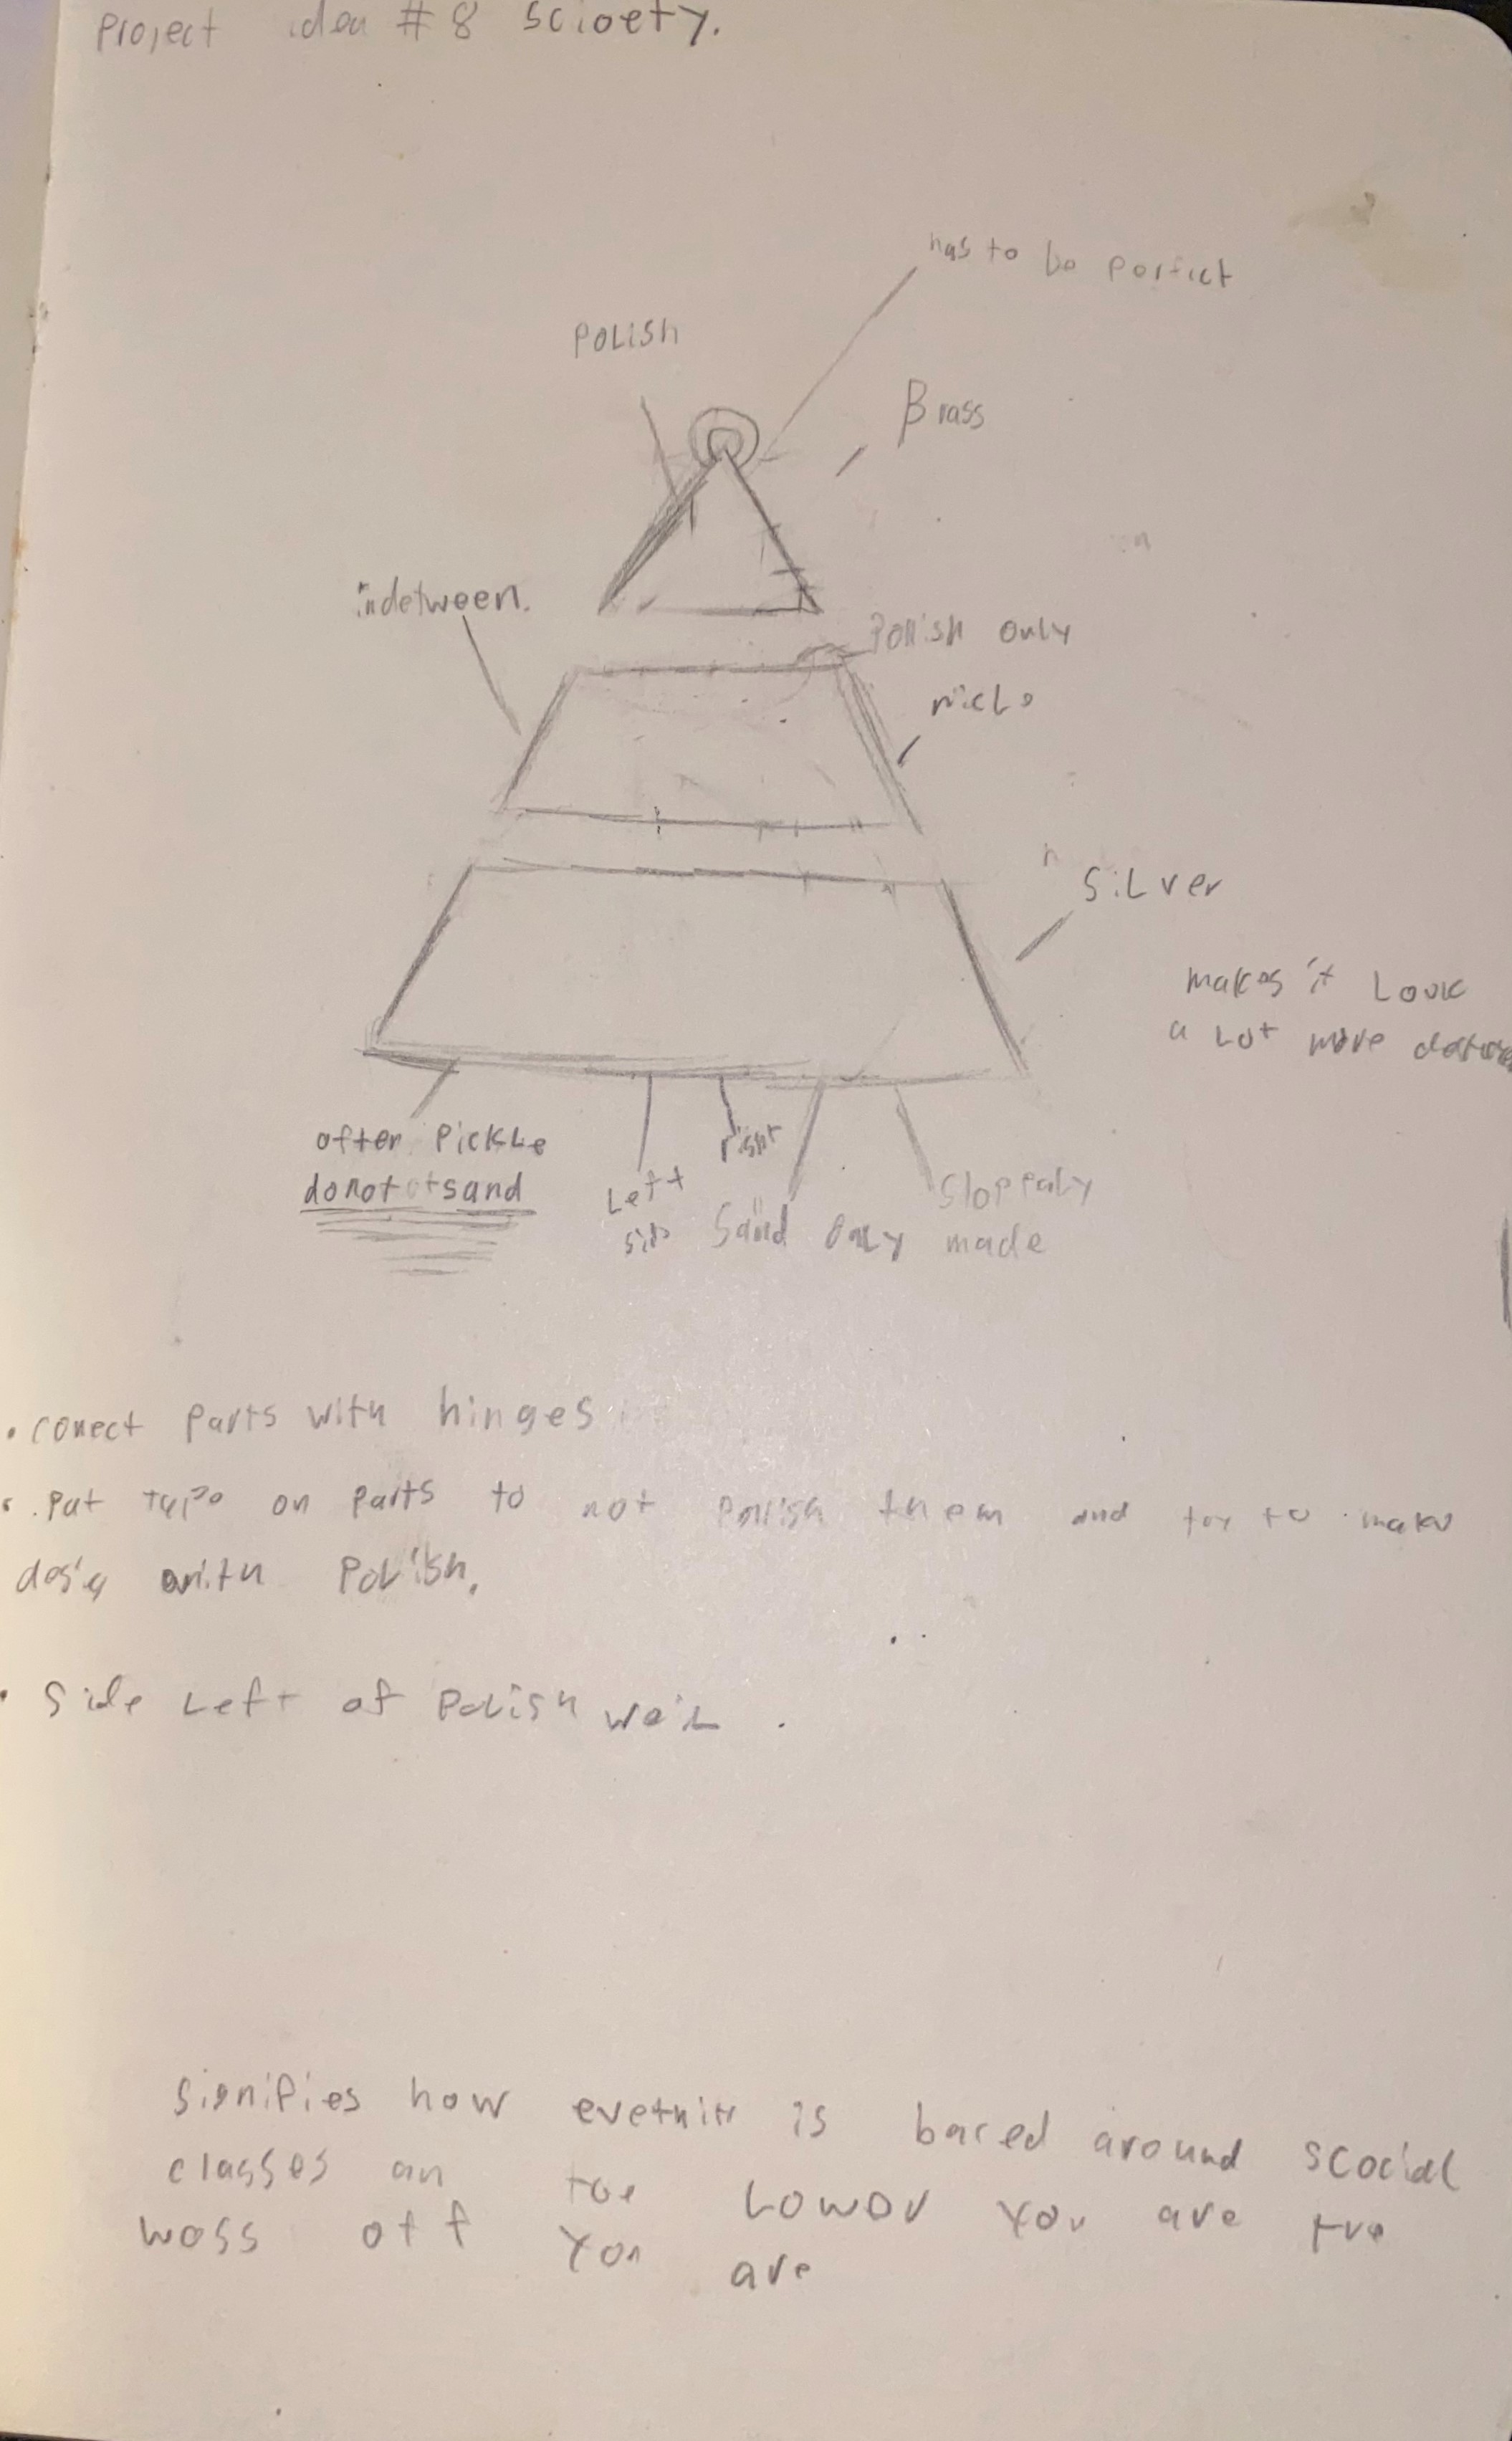 Project idea # 8 scioety.
has to be perfict
POLISH
Brass
indetween.
Polish only
nickle
SiLver
makes it Look
a Lot more
after Pickle
donot sand
Left
side
right
Sand only
Sloppaly
made
. conect Parts with hinges
. Put Tape on Parts to not Polish them and try to make
desig with Polish.
. Side Left of Polish weil .
Signifies how is baced around scocial
classes an the Lower you are the
woss off you are